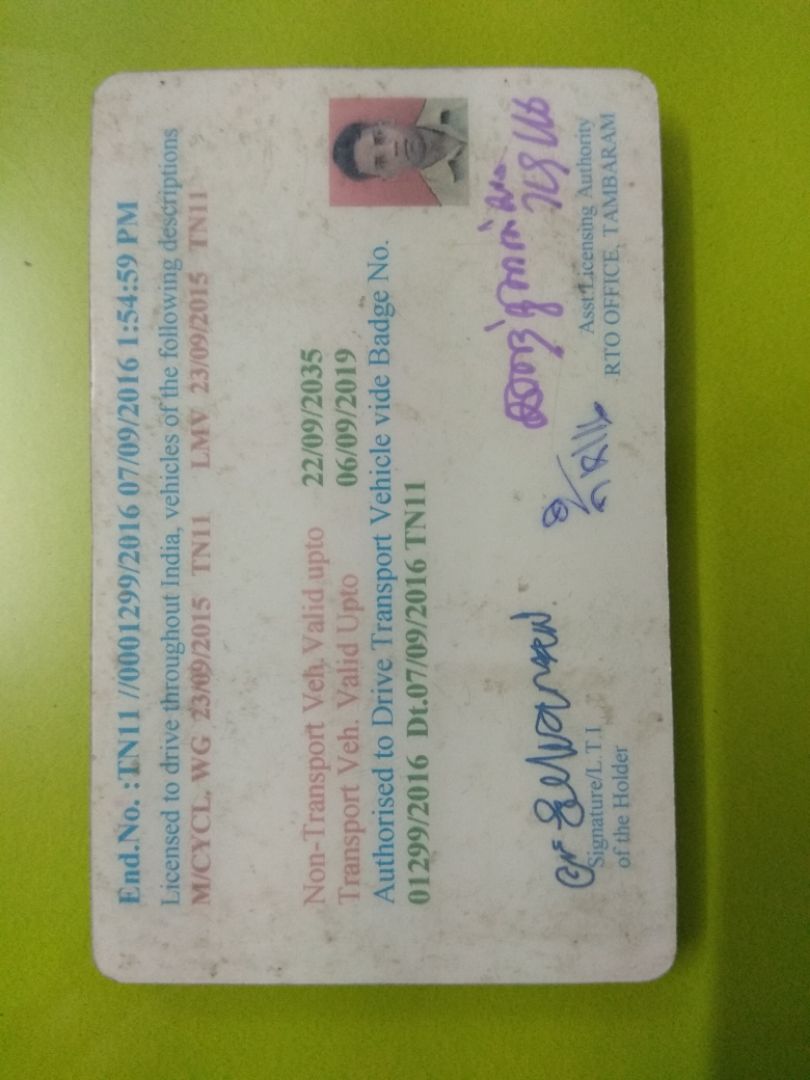 End.No. :TN11 //0001299/2016 07/09/2016 1:54:59 PM
Licensed to drive throughout India, vehicles of the following descriptions
M/CYCL. WG 23/09/2015 TN11 LMV 23/09/2015 TN11
Non-Transport Veh. Valid upto 22/09/2035
Transport Veh. Valid Upto 06/09/2019
Authorised to Drive Transport Vehicle vide Badge No.
01299/2016 Dt.07/09/2016 TN11
Signature/L. T I
of the Holder
Asst Licensing Authority
RTO OFFICE, TAMBARAM